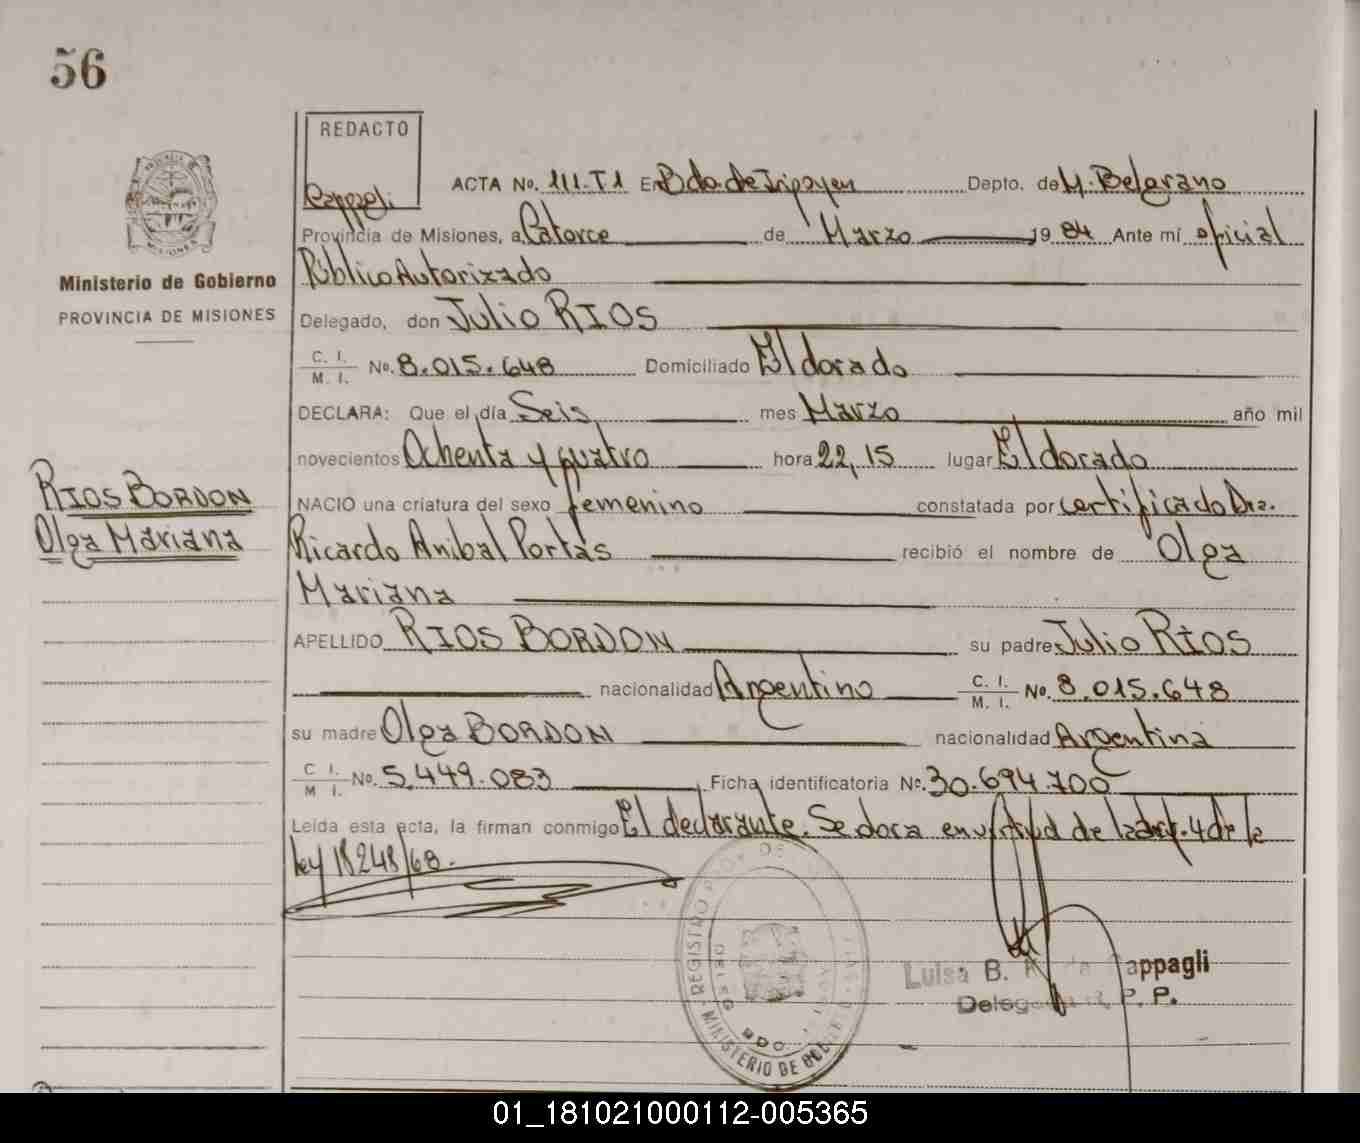 56
REDACTO
Cappagli
ACTA No. 111-T1 En Bdo. de Irigoyen Depto. de M. Belgrano
Provincia de Misiones, a Catorce de Marzo 19 84 Ante mí oficial
Público Autorizado
Ministerio de Gobierno
PROVINCIA DE MISIONES
Delegado, don Julio RIOS
C. I.
M. I.
No. 8.015.648 Domiciliado Eldorado
DECLARA: Que el día Seis mes Marzo año mil
novecientos Ochenta y cuatro hora 22,15 lugar Eldorado
RIOS BORDON
Olga Mariana
NACIO una criatura del sexo femenino constatada por certificado Dr.
Ricardo Anibal Portas recibió el nombre de Olga
Mariana
APELLIDO RIOS BORDON su padre Julio RIOS
nacionalidad Argentino C. I. M. I. No. 8.015.648
su madre Olga BORDON nacionalidad Argentina
C I. M I. No. 5.449.083 Ficha identificatoria No. 30.694.700
Leída esta acta, la firman conmigo El declarante. Se doca en virtud de la 4 de la
ley 18248/68.
REGISTRO PROV. DE
MINISTERIO DE
BDO.
Luisa B. de Cappagli
Delegada R. P. P.
01_181021000112-005365